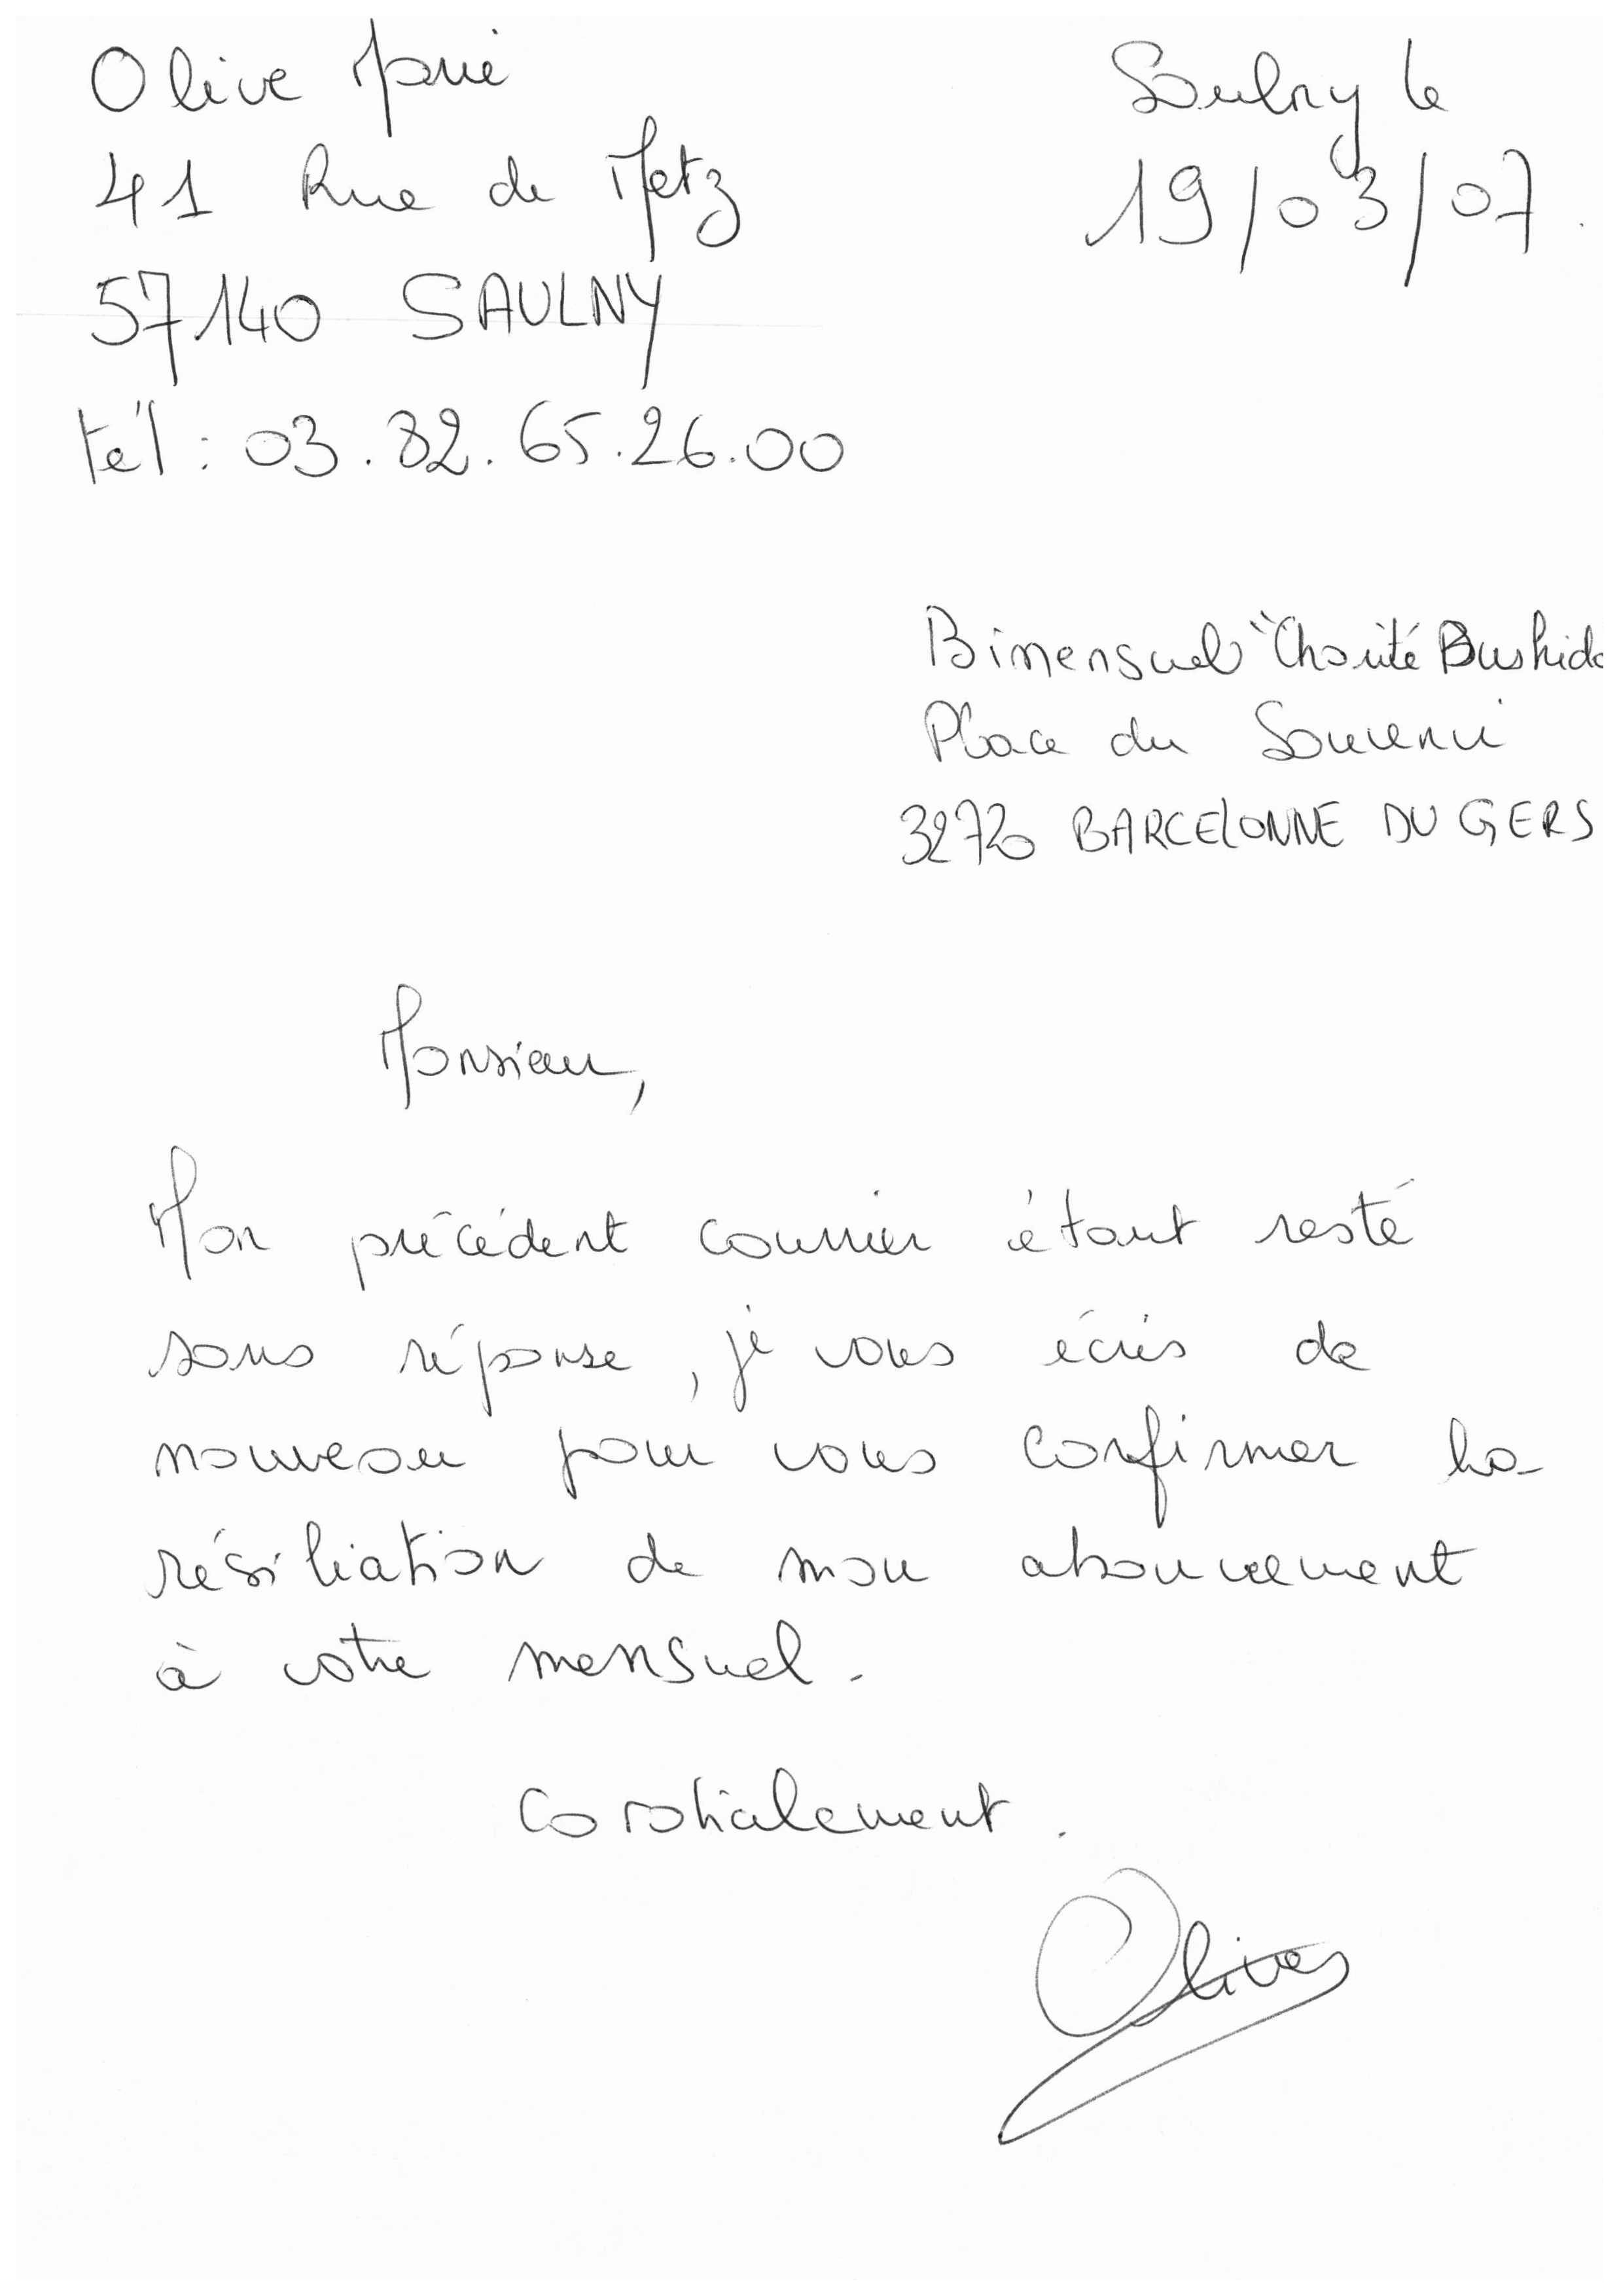 Olive Marie
Saulny le
41 Rue de Metz
19/03/07.
57140 SAULNY
tél : 03.82.65.26.00
Bimensuel "Charité Bushido
Place du Souvenir
32720 BARCELONNE DU GERS
Monsieur,
Mon précédent courrier étant resté
sans réponse, je vous écris de
nouveau pour vous confirmer la
résiliation de mon abonnement
à votre mensuel.
Cordialement.
Olive